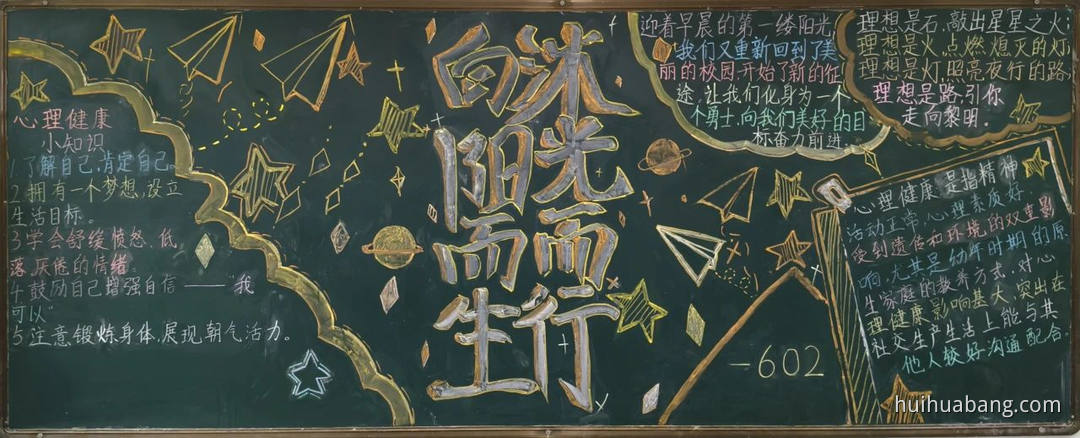 心理健康
小知识
1.了解自己,肯定自己。
2.拥有一个梦想,设立
生活目标。
3.学会舒缓愤怒、低
落、厌倦的情绪。
4.鼓励自己增强自信——"我
可以"
5.注意锻炼身体,展现朝气活力。
沐光而行
向阳而生
迎着早晨的第一缕阳光,
我们又重新回到了美
丽的校园,开始了新的征
途,让我们化身为一个
个勇士,向我们美好的目
标奋力前进.
理想是石,敲出星星之火;
理想是火,点燃熄灭的灯;
理想是灯,照亮夜行的路;
理想是路,引你
走向黎明.
心理健康是指精神、
活动正常、心理素质好.
受到遗传和环境的双重影
响,尤其是幼年时期的原
生家庭的教养方式,对心
理健康影响甚大,突出在
社交生产生活上能与其
他人较好沟通配合.
-602
huihuabang.com